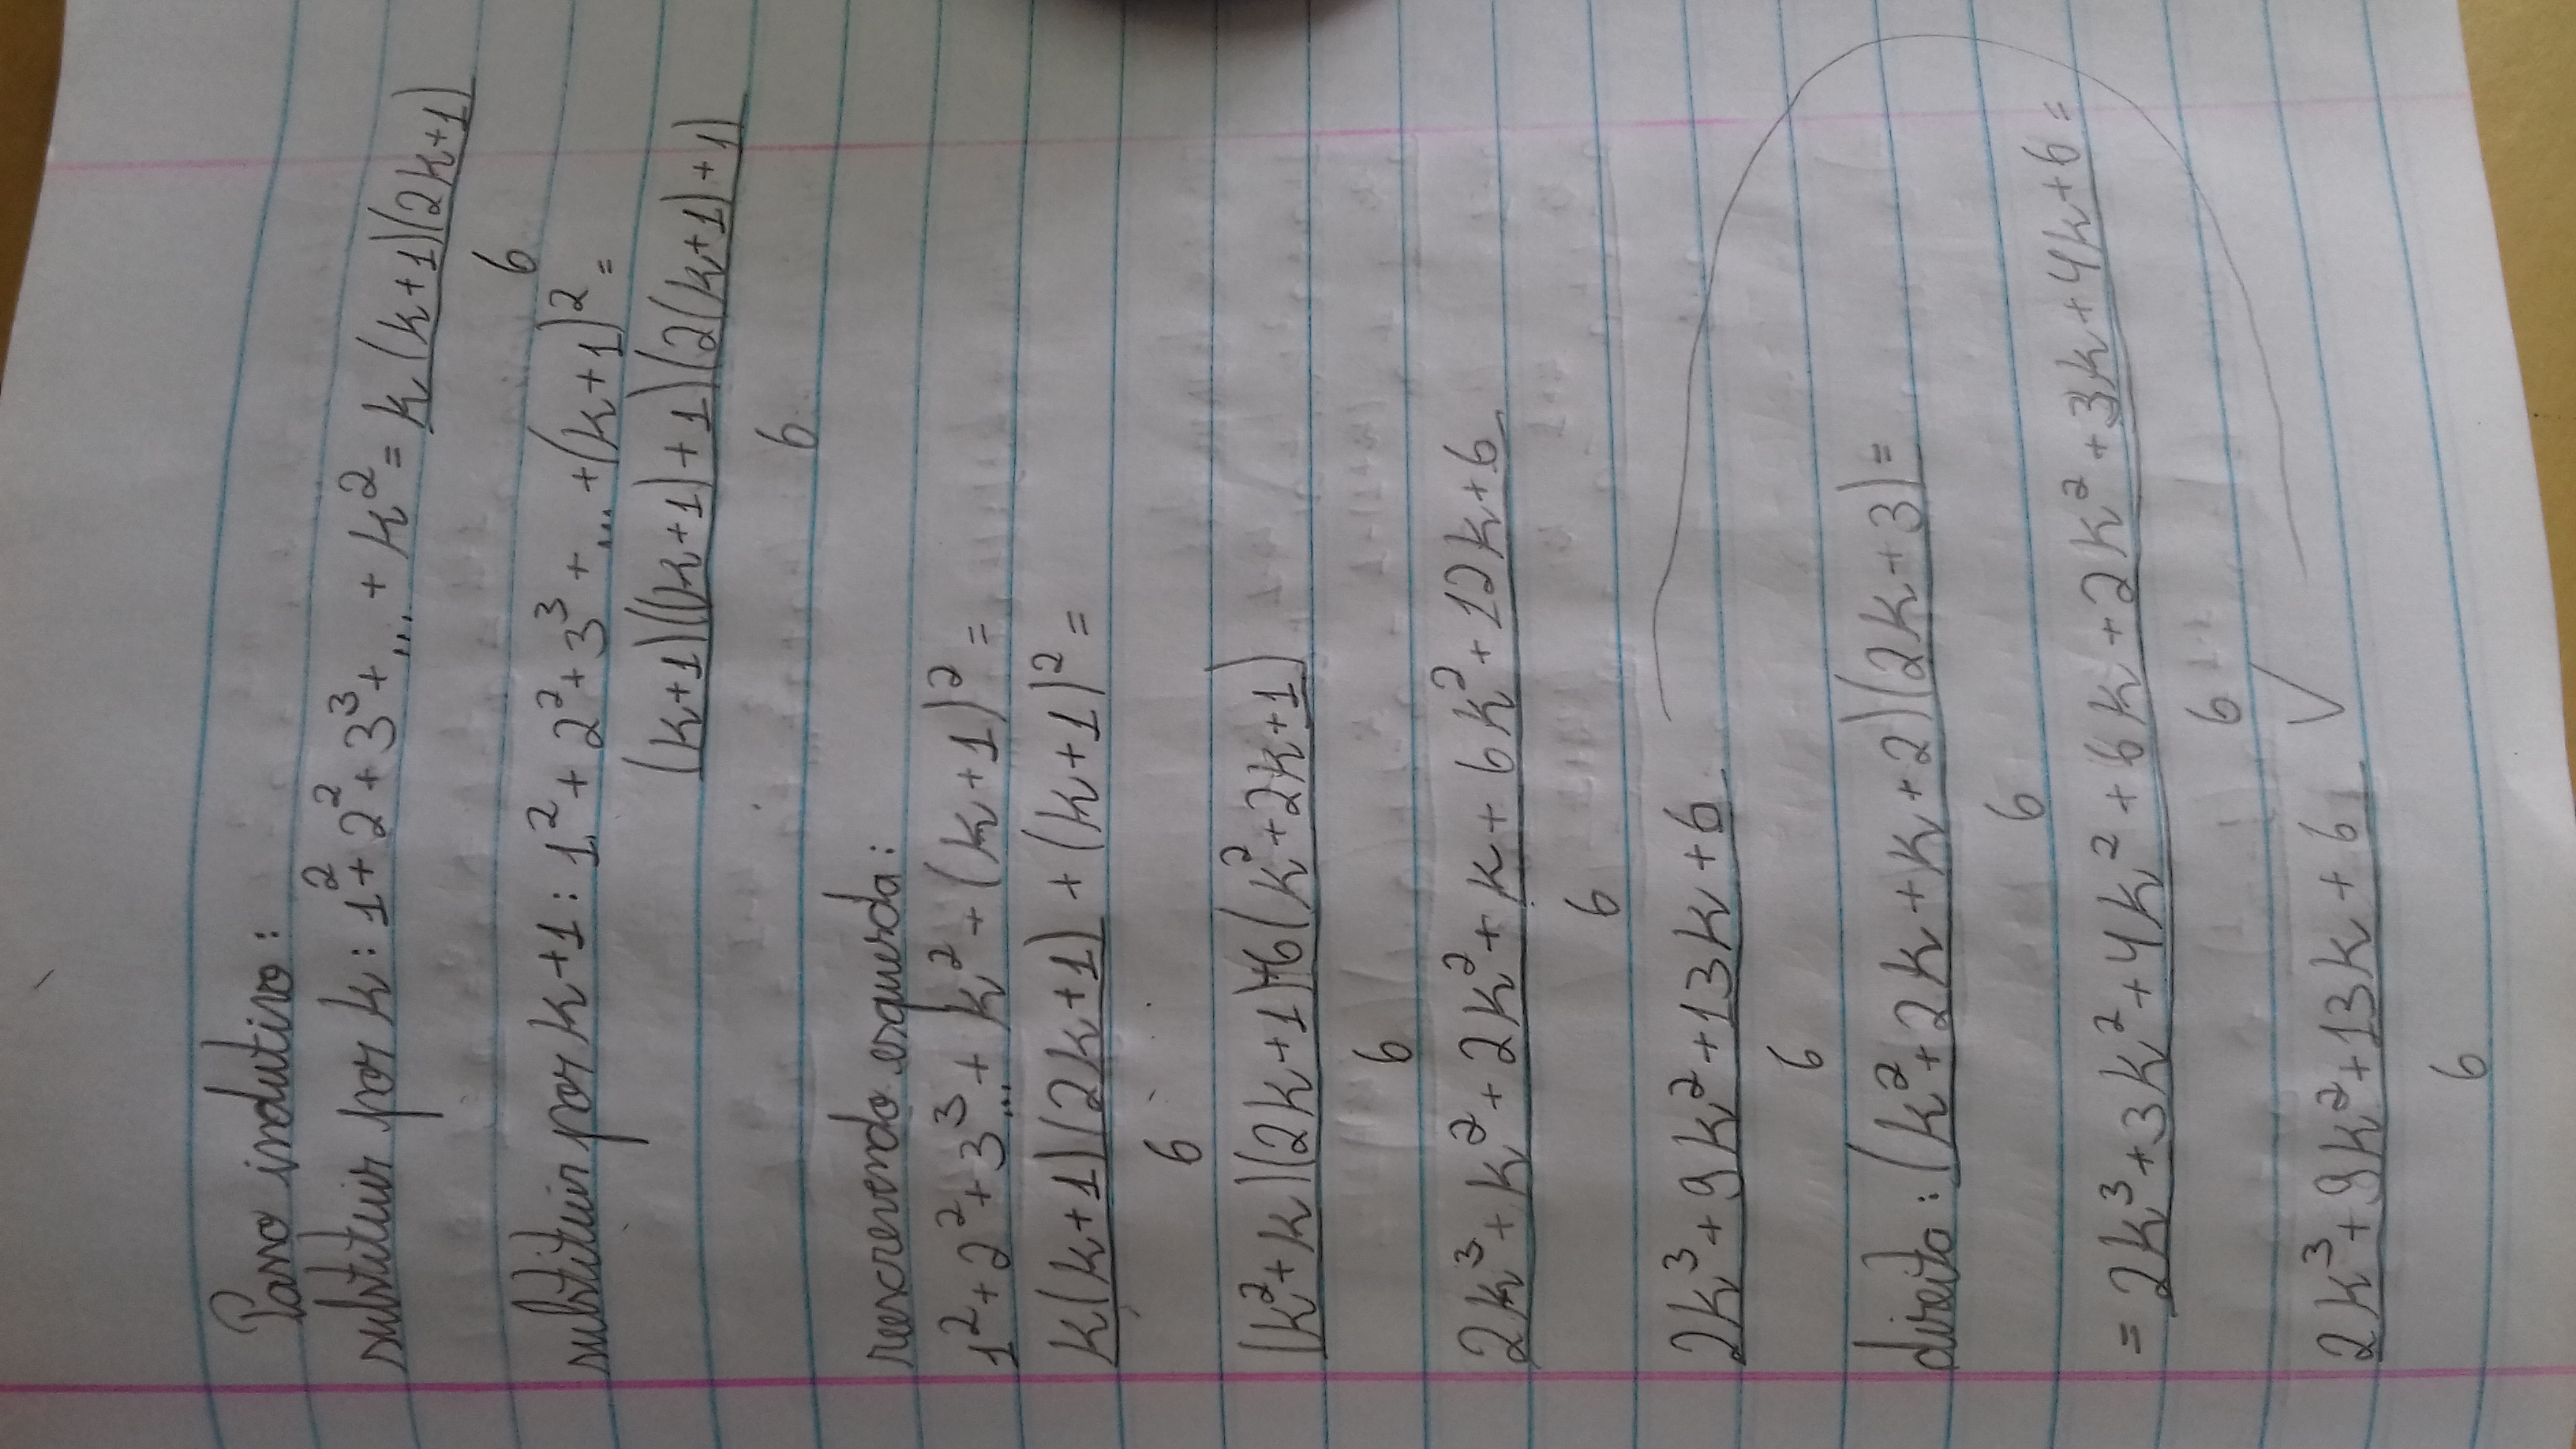 Passo indutivo:
substituir por k: 1²+2²+3³+...+k²=k(k+1)(2k+1)
6
substituir por k+1: 1²+2²+3³+...+(k+1)²=
(k+1)((k+1)+1)(2(k+1)+1)
6
reescrevendo esquerda:
1²+2²+3³...+k²+(k+1)²=
k(k+1)(2k+1)+(k+1)²=
6
(k²+k)(2k+1)+6(k²+2k+1)
6
2k³+k²+2k²+k+6k²+12k+6
6
2k³+9k²+13k+6
6
direito: (k²+2k+k+2)(2k+3)=
6
=2k³+3k²+4k²+6k+2k²+3k+4k+6=
6
2k³+9k²+13k+6 ✓
6